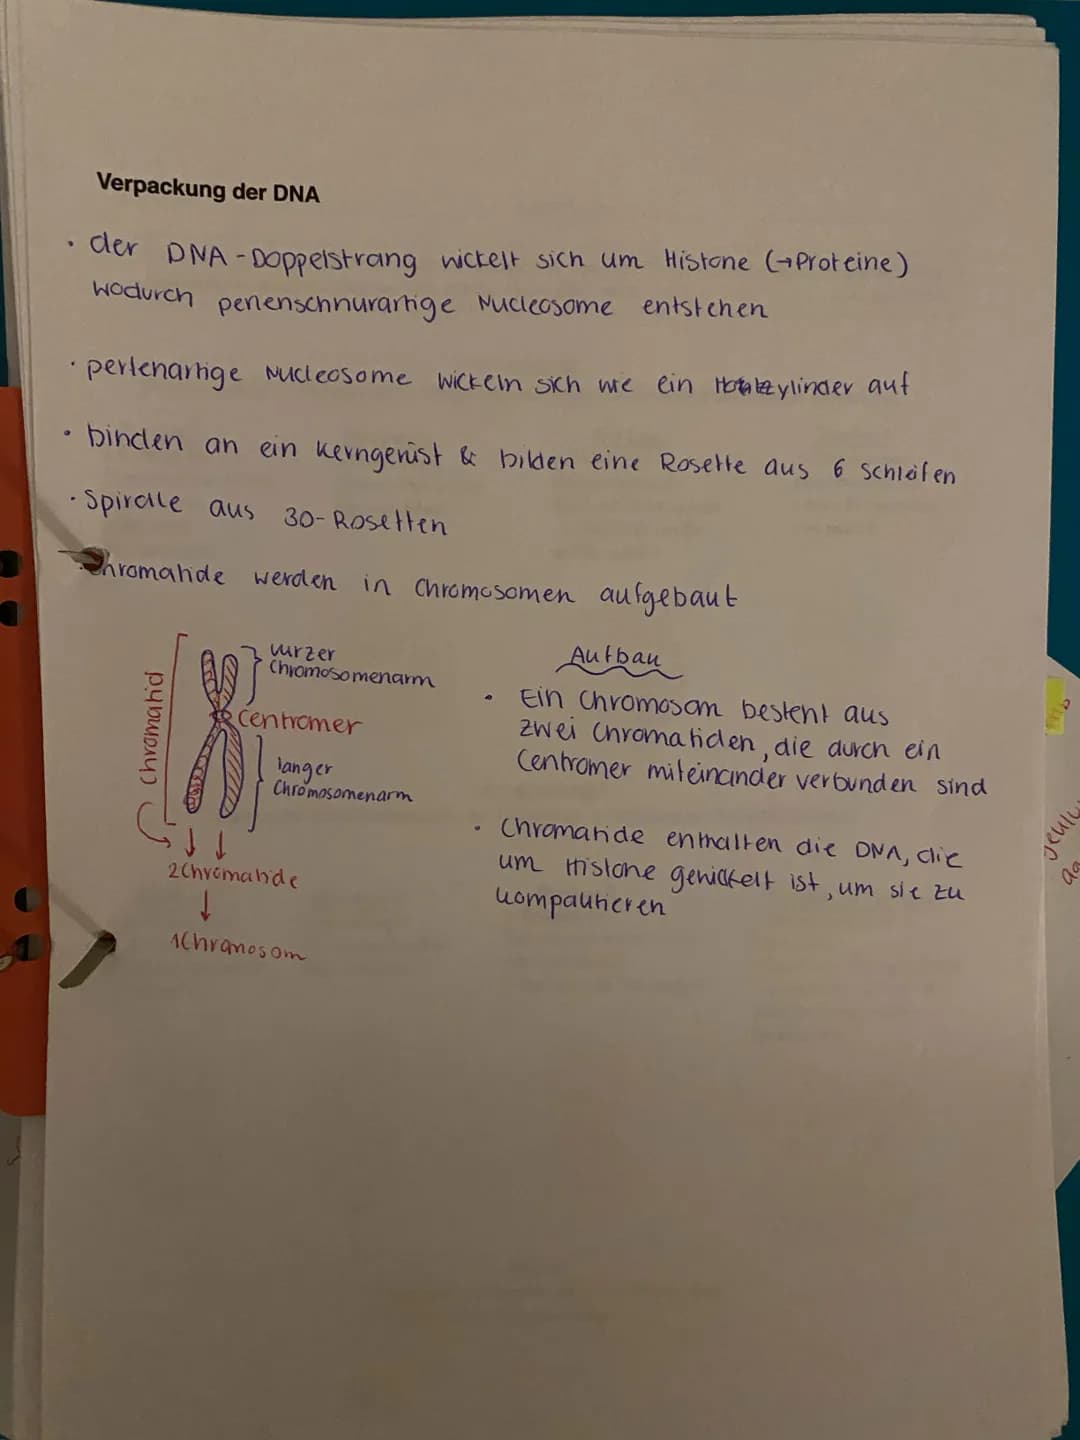 Verpackung der DNA
• der DNA-Doppelstrang wickelt sich um Histone (→Proteine)
wodurch perlenschnurartige Nucleosome entstehen
• perlenartige Nucleosome wickeln sich wie ein Hohlzylinder auf
• binden an ein Kerngerüst & bilden eine Rosette aus 6 Schleifen
• Spiralle aus 30-Rosetten
Chromatide werden in Chromosomen aufgebaut
Chromatid
kurzer
Chromosomenarm
Centromer
langer
Chromosomenarm
2 Chromatide
1 Chromosom
Aufbau
• Ein Chromosom besteht aus
zwei Chromatiden, die durch ein
Centromer miteinander verbunden sind
• Chromatide enthalten die DNA, die
um Histone gewickelt ist, um sie zu
kompaktieren